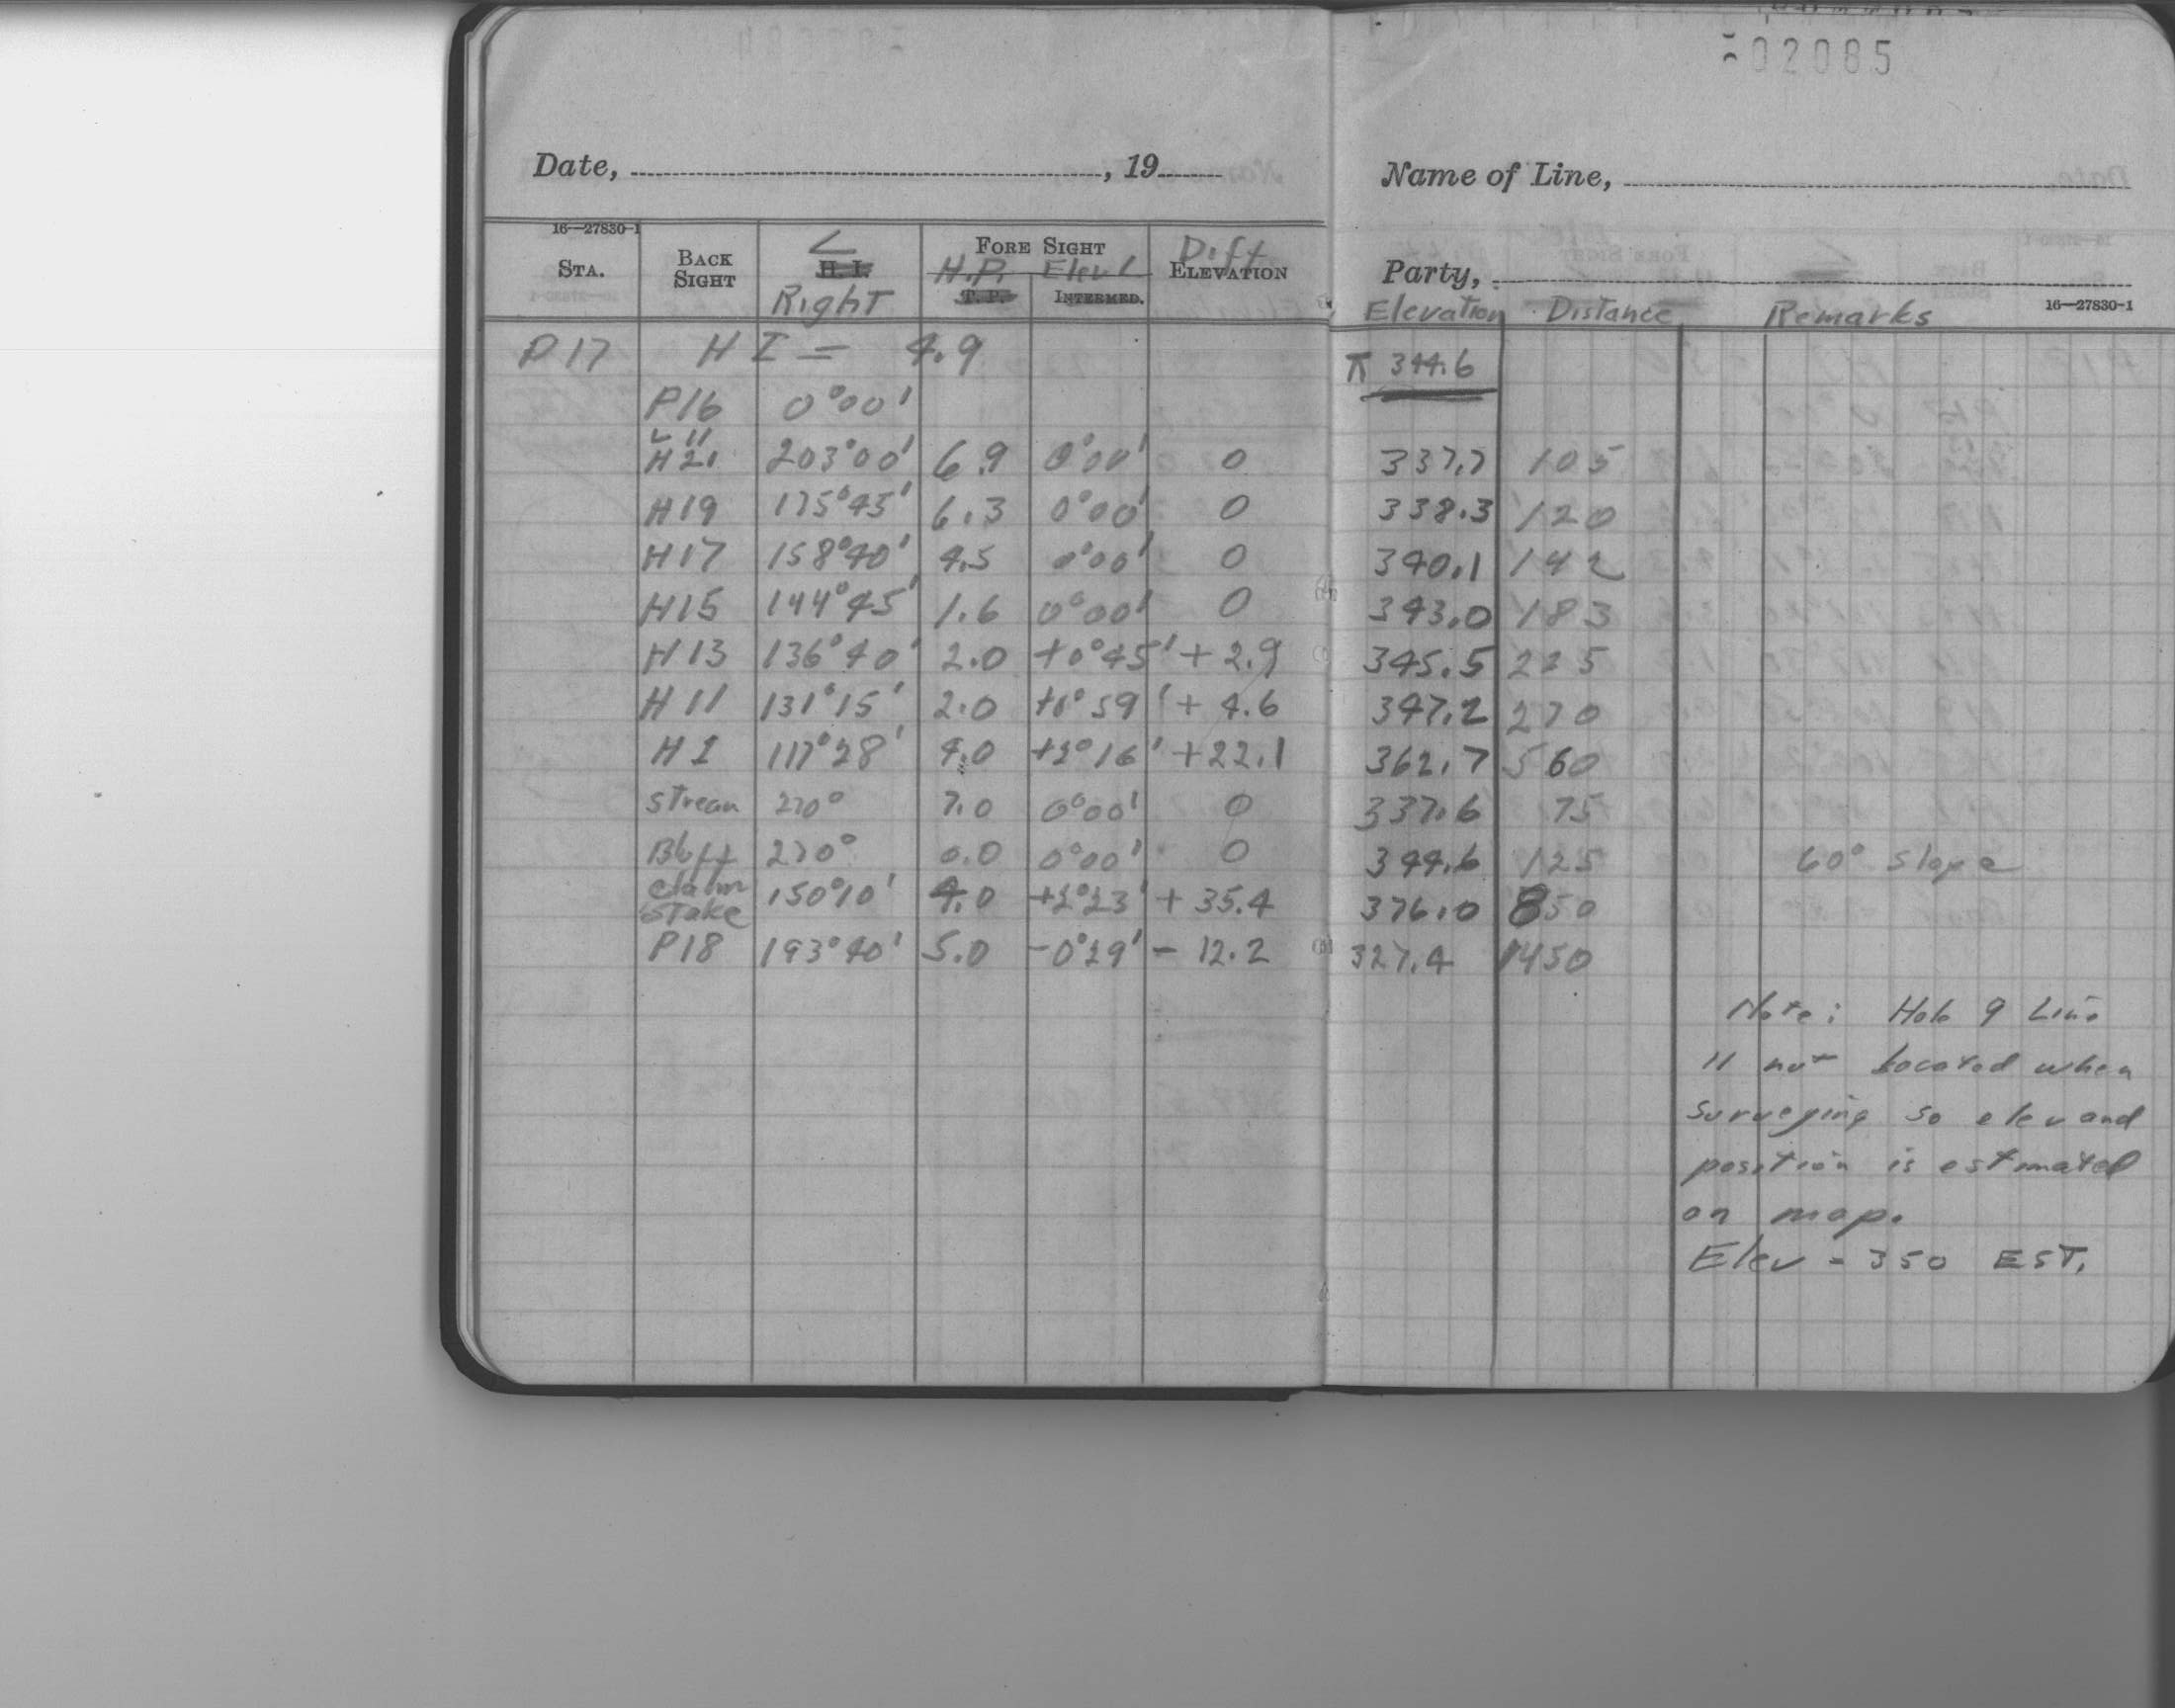 02085
Date, , 19
Name of Line,
16—27830-1
STA. BACK SIGHT ∠ H. I. Right FORE SIGHT H.P. T. P. Elev ∠ INTERMED. Diff ELEVATION
Party,
Elevation Distance Remarks 16—27830-1
P17 H I = 4.9 ⊼ 344.6
P16 0°00'
L 11
H 21 203°00' 6.9 0°00' 0 337.7 105
H19 175°45' 6.3 0°00' 0 338.3 120
H17 158°40' 4.5 0°00' 0 340.1 142
H15 144°45' 1.6 0°00' 0 343.0 183
H13 136°40' 2.0 +0°45' +2.9 345.5 225
H 11 131°15' 2.0 +0°59' +4.6 347.2 270
H 1 117°28' 4.0 +2°16' +22.1 362.7 560
Stream 270° 7.0 0°00' 0 337.6 75
Bluff 270° 0.0 0°00' 0 344.6 125 60° slope
Claim Stake 150°10' 4.0 +2°23' +35.4 376.0 850
P18 193°40' 5.0 -0°29' - 12.2 327.4 1450
Note: Hole 9 Line
11 not located when
surveying so elev and
position is estimated
on map.
Elev = 350 EST.